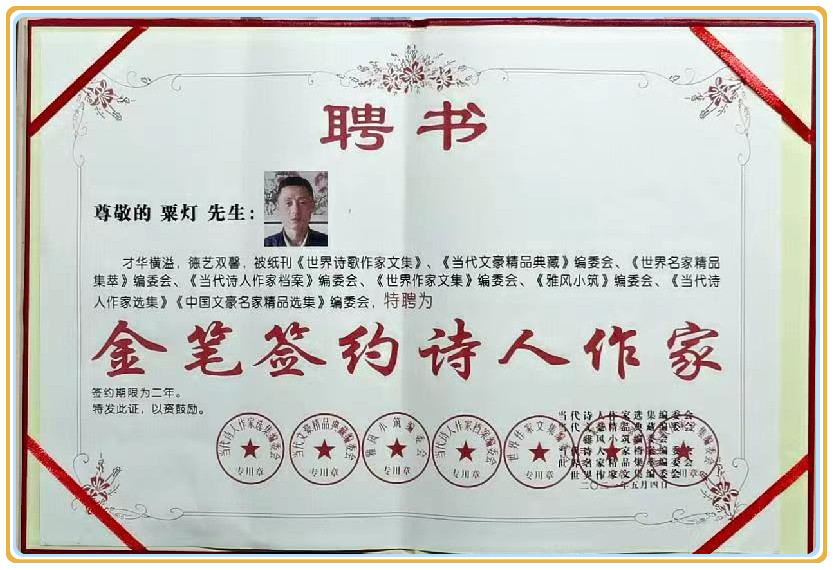 聘书
尊敬的 粟灯 先生：
才华横溢，德艺双馨，被纸刊《世界诗歌作家文集》、《当代文豪精品典藏》编委会、《世界名家精品
集萃》编委会、《当代诗人作家档案》编委会、《世界作家文集》编委会、《雅风小筑》编委会、《当代诗
人作家选集》《中国文豪名家精品选集》编委会，特聘为
金笔签约诗人作家
签约期限为二年。
特发此证，以资鼓励。
当代诗人作家选集编委会
当代文豪精品典藏编委会
雅风小筑编委会
当代诗人作家档案编委会
世界名家精品集萃编委会
世界作家文集编委会
二〇二一年五月四日
当代诗人作家选集编委会
专用章
当代文豪精品典藏编委会
专用章
雅风小筑编委会
专用章
当代诗人作家档案编委会
专用章
世界作家文集编委会
专用章
专用章